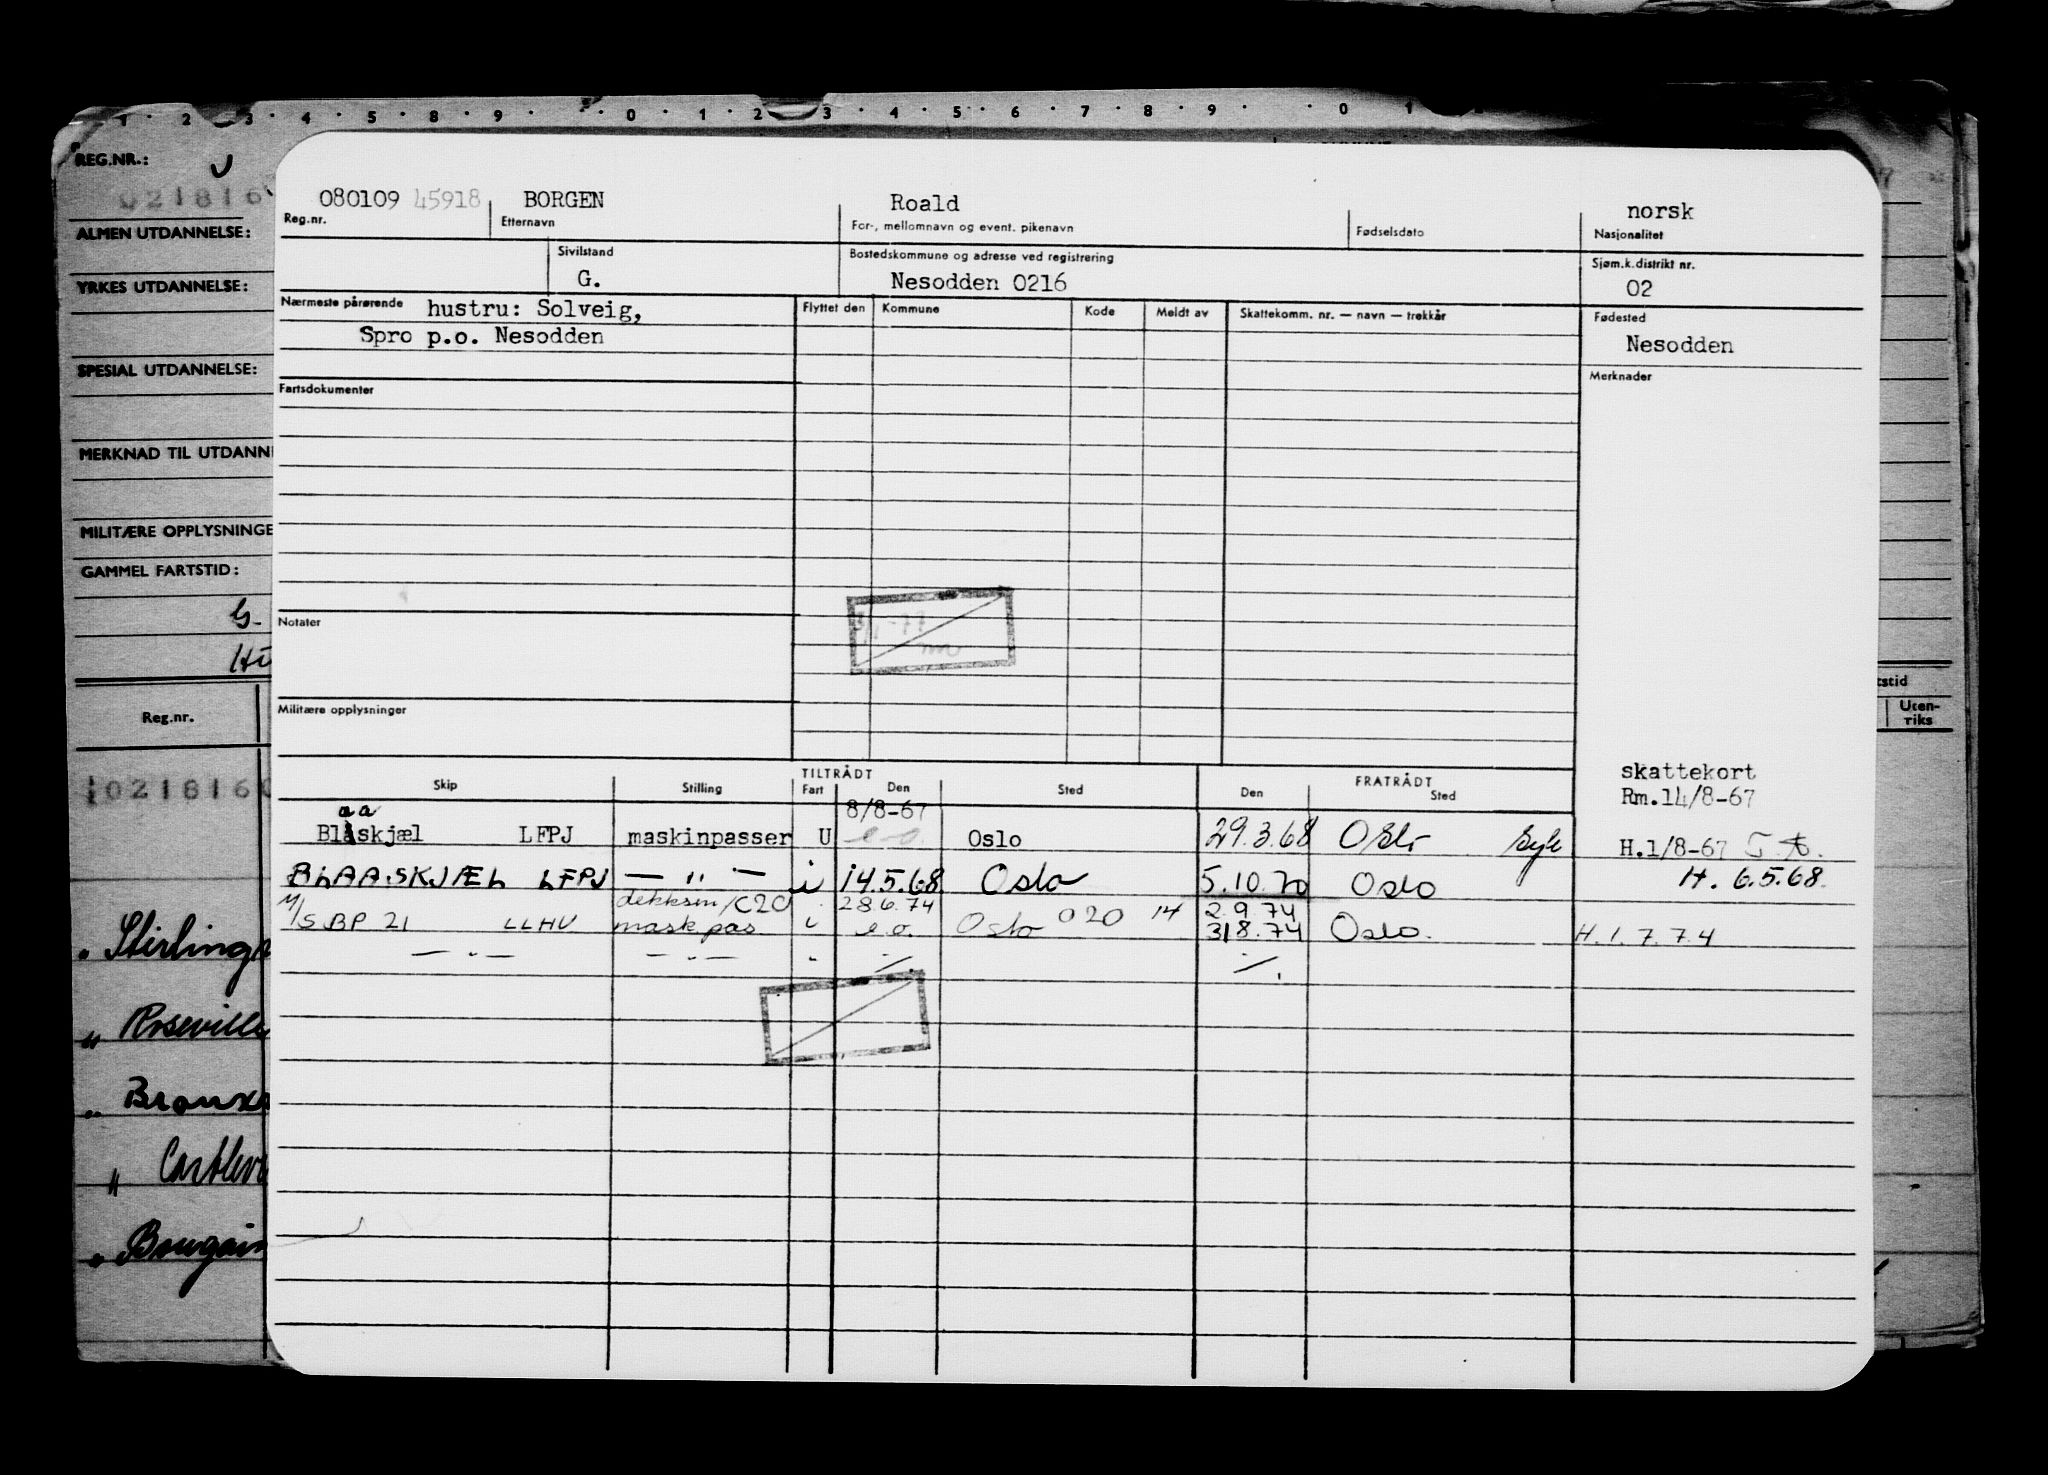 1 2 3 4 5 8 9 0 1 2 3 4 5 6 7 8 9 0 1
REG.NR.:
021816
ALMEN UTDANNELSE:
YRKES UTDANNELSE:
SPESIAL UTDANNELSE:
MERKNAD TIL UTDANN
MILITÆRE OPPLYSNINGE
GAMMEL FARTSTID:
G.
Reg.nr.
021816
Stirling
" Roseville
" Bronx
"
"
tstid
Uten-
riks
080109 45918 BORGEN Roald norsk
Reg.nr. Etternavn For-, mellomnavn og event. pikenavn Fødselsdato Nasjonalitet
Sivilstand Bostedskommune og adresse ved registrering Sjøm.k.distrikt nr.
G. Nesodden 0216 02
Nærmeste pårørende hustru: Solveig, Flyttet den Kommune Kode Meldt av Skattekomm. nr. — navn — trekkår Fødested
Spro p.o. Nesodden Nesodden
Fartsdokumenter Merknader
Notater
Militære opplysninger
skattekort
Rm.14/8-67
TILTRÅDT FRATRÅDT
Skip Stilling Fart Den Sted Den Sted
aa 8/8-67
Blåskjæl LFPJ maskinpasser U e.o. Oslo 29.3.68 Oslo syk H.1/8-67
BLAASKJÆL LFPJ — " — i 14.5.68 Oslo 5.10.70 Oslo H. 6.5.68.
dekksm/C20 28.6.74 020 14 2.9 74
M/S BP 21 LLHV mask.pas. e.o. Oslo 31.8.74 Oslo. H.1.7.74
— " — — " — " ./. ./.